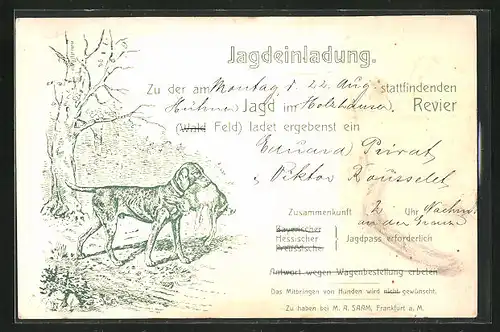 Jagdeinladung.
Zu der am Montag d. 22. Aug. stattfindenden
Hühner Jagd im Holzhäuser Revier
(Wald Feld) ladet ergebenst ein
Eduard Privat
Viktor Rousselet
Zusammenkunft 2 Uhr Nachm.
an der Grenze
Bayerischer
Hessischer } Jagdpass erforderlich
Preussische
Antwort wegen Wagenbestellung erbeten
Das Mitbringen von Hunden wird nicht gewünscht.
Zu haben bei M. R. SAAM, Frankfurt a. M.